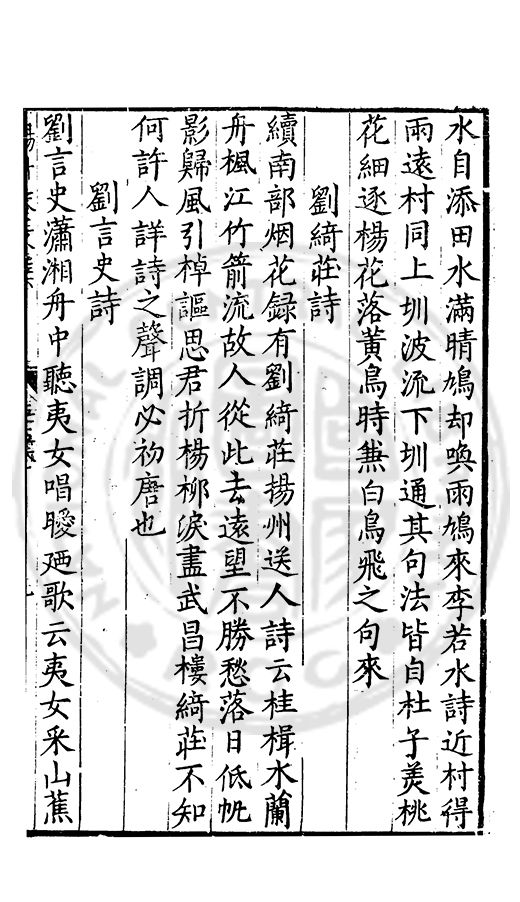 水自添田水滿晴鳩却喚雨鳩來李若水詩近村得
雨遠村同上圳波流下圳通其句法皆自杜子羙桃
花細逐楊花落黃鳥時兼白鳥飛之句來
劉綺莊詩
續南部烟花録有劉綺莊揚州送人詩云桂楫木蘭
舟楓江竹箭流故人從此去遠望不勝愁落日低帆
影歸風引棹謳思君折楊柳淚盡武昌樓綺莊不知
何許人詳詩之聲調必初唐也
劉言史詩
劉言史瀟湘舟中聽夷女唱曖廼歌云夷女采山蕉